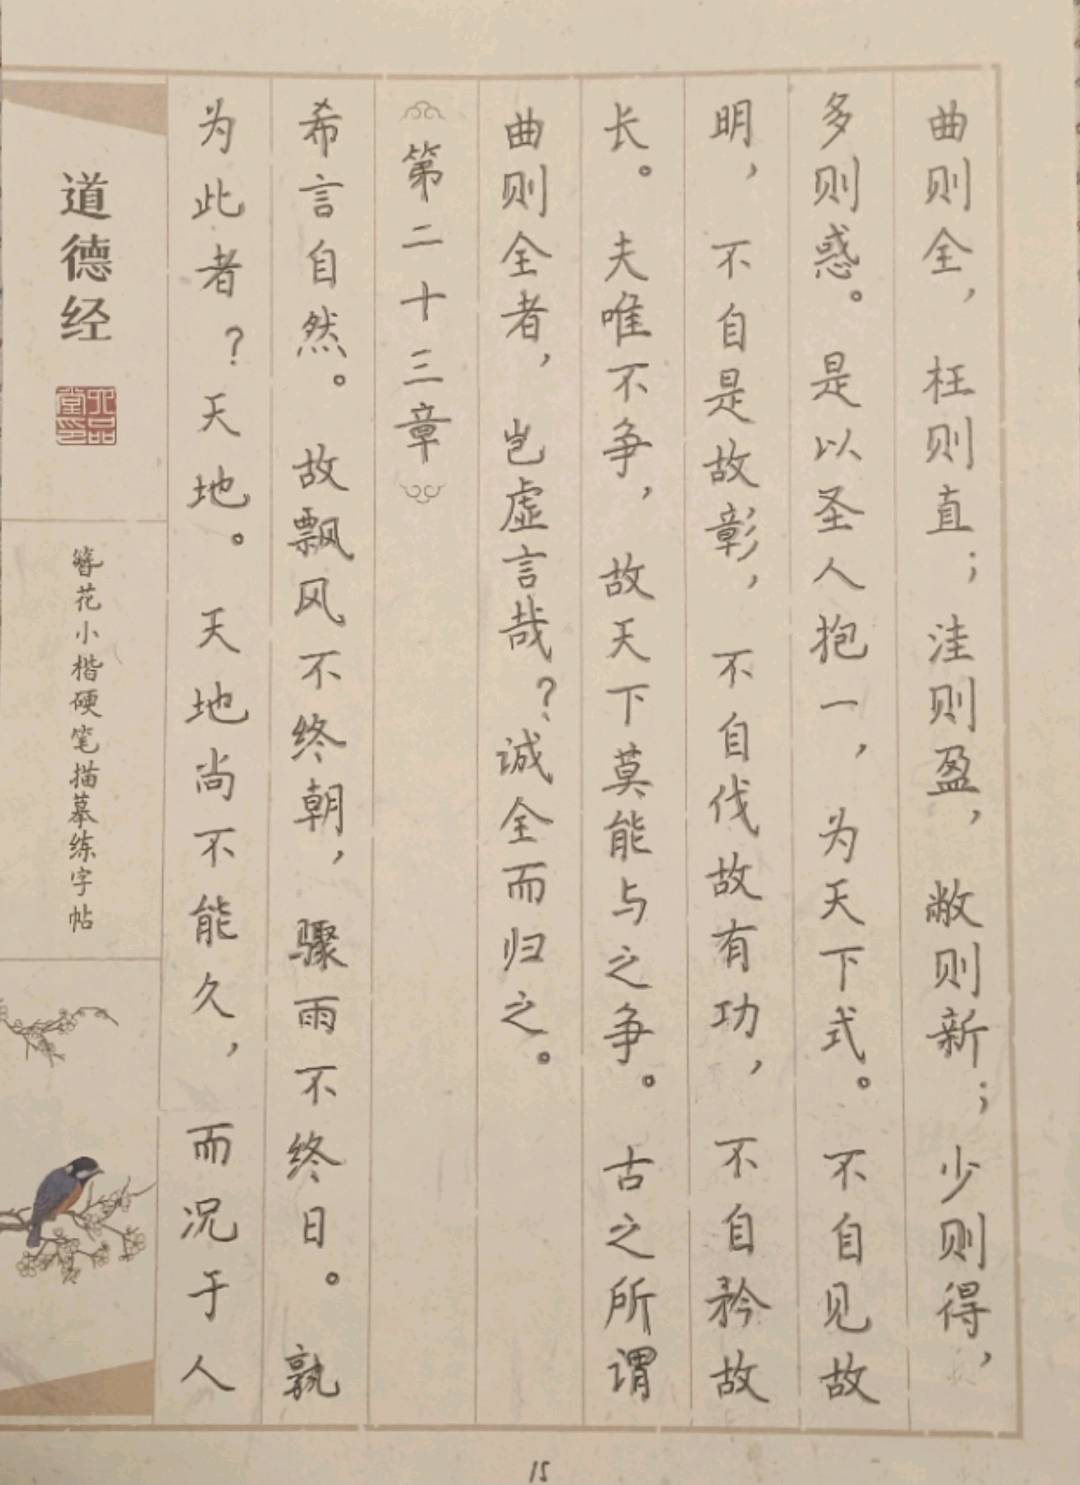 曲则全，枉则直；洼则盈，敝则新；少则得，
多则惑。是以圣人抱一，为天下式。不自见故
明，不自是故彰，不自伐故有功，不自矜故
长。夫唯不争，故天下莫能与之争。古之所谓
曲则全者，岂虚言哉？诚全而归之。
第二十三章
希言自然。故飘风不终朝，骤雨不终日。孰
为此者？天地。天地尚不能久，而况于人
道德经
六品堂印
簪花小楷硬笔描摹练字帖
15